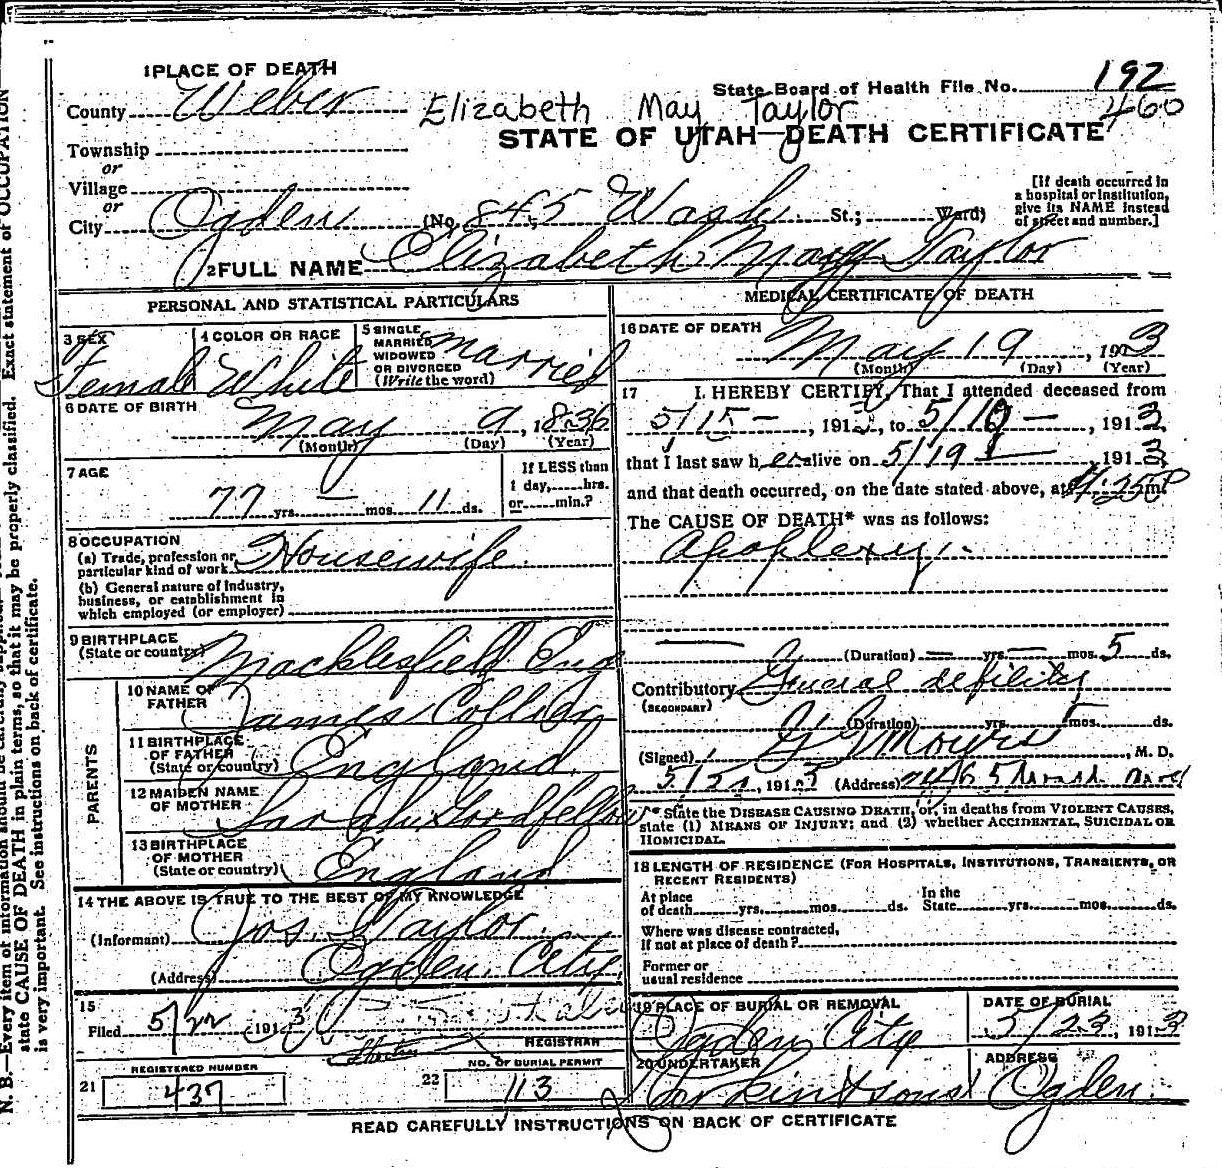 1 PLACE OF DEATH
State Board of Health File No. 192
County Weber
Elizabeth May Taylor
460
STATE OF UTAH—DEATH CERTIFICATE
Township
or
Village
or
City Ogden (No. 845 Wash St.; Ward)
[If death occurred in
a hospital or institution,
give its NAME instead
of street and number.]
2 FULL NAME Elizabeth May Taylor
PERSONAL AND STATISTICAL PARTICULARS
3 SEX
Female
4 COLOR OR RACE
White
5 SINGLE
MARRIED
WIDOWED
OR DIVORCED
(Write the word)
Married
6 DATE OF BIRTH
May 9, 1836
(Month) (Day) (Year)
7 AGE
77 yrs. — mos. 11 ds.
If LESS than
1 day, hrs.
or min.?
8 OCCUPATION
(a) Trade, profession or
particular kind of work Housewife
(b) General nature of industry,
business, or establishment in
which employed (or employer)
9 BIRTHPLACE
(State or country) Macklesfield Eng
PARENTS
10 NAME OF
FATHER James Collier
11 BIRTHPLACE
OF FATHER
(State or country) England
12 MAIDEN NAME
OF MOTHER Sarah Goodfellow
13 BIRTHPLACE
OF MOTHER
(State or country) England
14 THE ABOVE IS TRUE TO THE BEST OF MY KNOWLEDGE
(Informant) Jos. Taylor
(Address) Ogden City
15
Filed 5/22 1913
REGISTRAR
21
REGISTERED NUMBER
437
22
NO. OF BURIAL PERMIT
113
MEDICAL CERTIFICATE OF DEATH
16 DATE OF DEATH
May 19, 1913
(Month) (Day) (Year)
17 I HEREBY CERTIFY, That I attended deceased from
5/15 —, 1913, to 5/19 —, 1913,
that I last saw her alive on 5/19 —, 1913,
and that death occurred, on the date stated above, at 4:25 P m.
The CAUSE OF DEATH* was as follows:
Apoplexy
(Duration) — yrs. — mos. 5 ds.
Contributory General debility
(SECONDARY)
(Duration) yrs. mos. ds.
(Signed) M. D.
1913 (Address)
* State the DISEASE CAUSING DEATH, or, in deaths from VIOLENT CAUSES,
state (1) MEANS OF INJURY; and (2) whether ACCIDENTAL, SUICIDAL OR
HOMICIDAL.
18 LENGTH OF RESIDENCE (FOR HOSPITALS, INSTITUTIONS, TRANSIENTS, OR
RECENT RESIDENTS)
At place
of death yrs. mos. ds.
In the
State yrs. mos. ds.
Where was disease contracted,
if not at place of death?
Former or
usual residence
19 PLACE OF BURIAL OR REMOVAL
Ogden City
DATE OF BURIAL
5/23, 1913
20 UNDERTAKER
ADDRESS
Ogden
READ CAREFULLY INSTRUCTIONS ON BACK OF CERTIFICATE
N. B.—Every item of information should be carefully
state CAUSE OF DEATH in plain terms, so that it may be properly classified. Exact statement of OCCUPATION
is very important. See instructions on back of certificate.